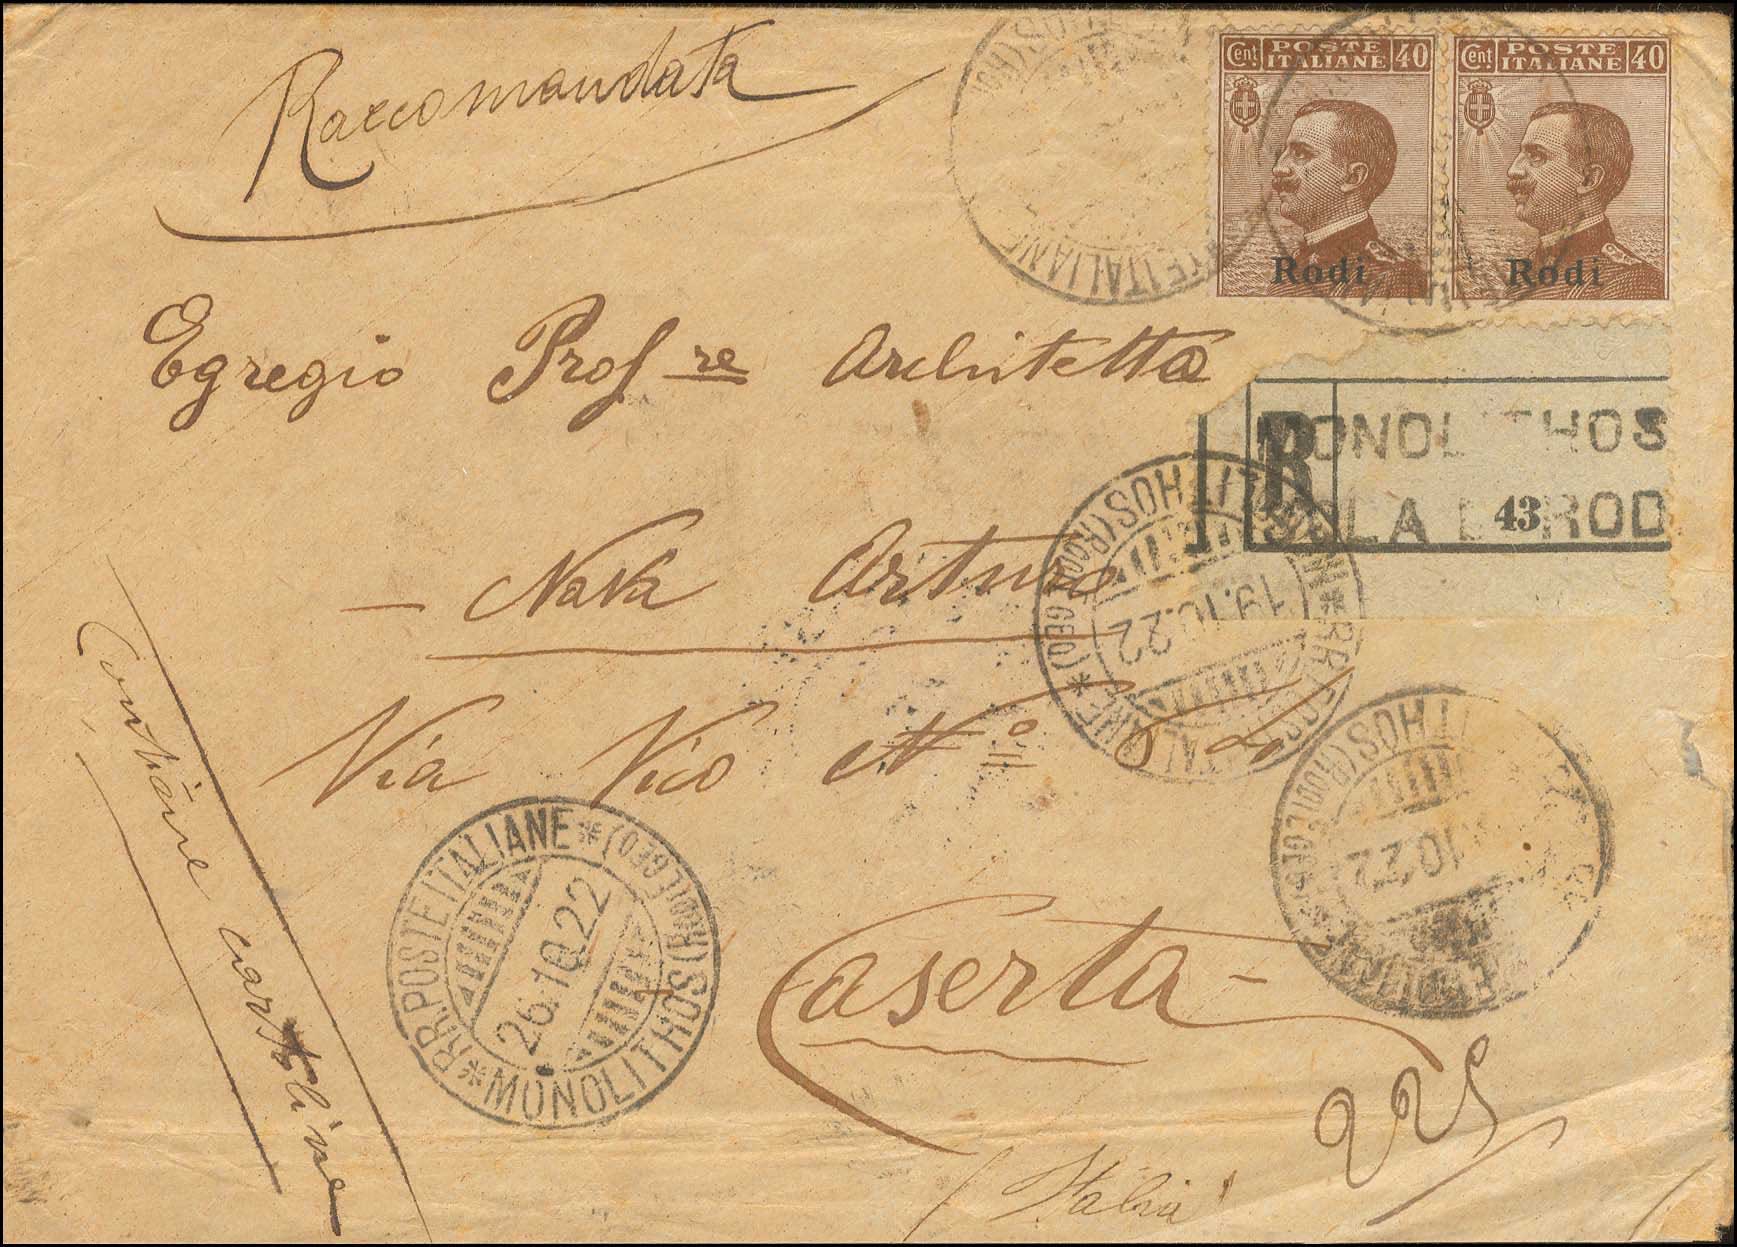 Raccomandata
Cent POSTE ITALIANE 40
Rodi
Cent POSTE ITALIANE 40
Rodi
Egregio Prof re Architetto
R MONOLITHOS
43 ISOLA DI RODI
- Nava Arturo
Via Vico N°
Caserta -
(Italia)
225
Contiene cartoline
RR.POSTE ITALIANE * MONOLITHOS (RODI EGEO) *
26.10.22
RR.POSTE ITALIANE * MONOLITHOS (RODI EGEO) *
19.10.22
LITHOS (RODI EGEO)
.10.22
POSTE ITALIANE